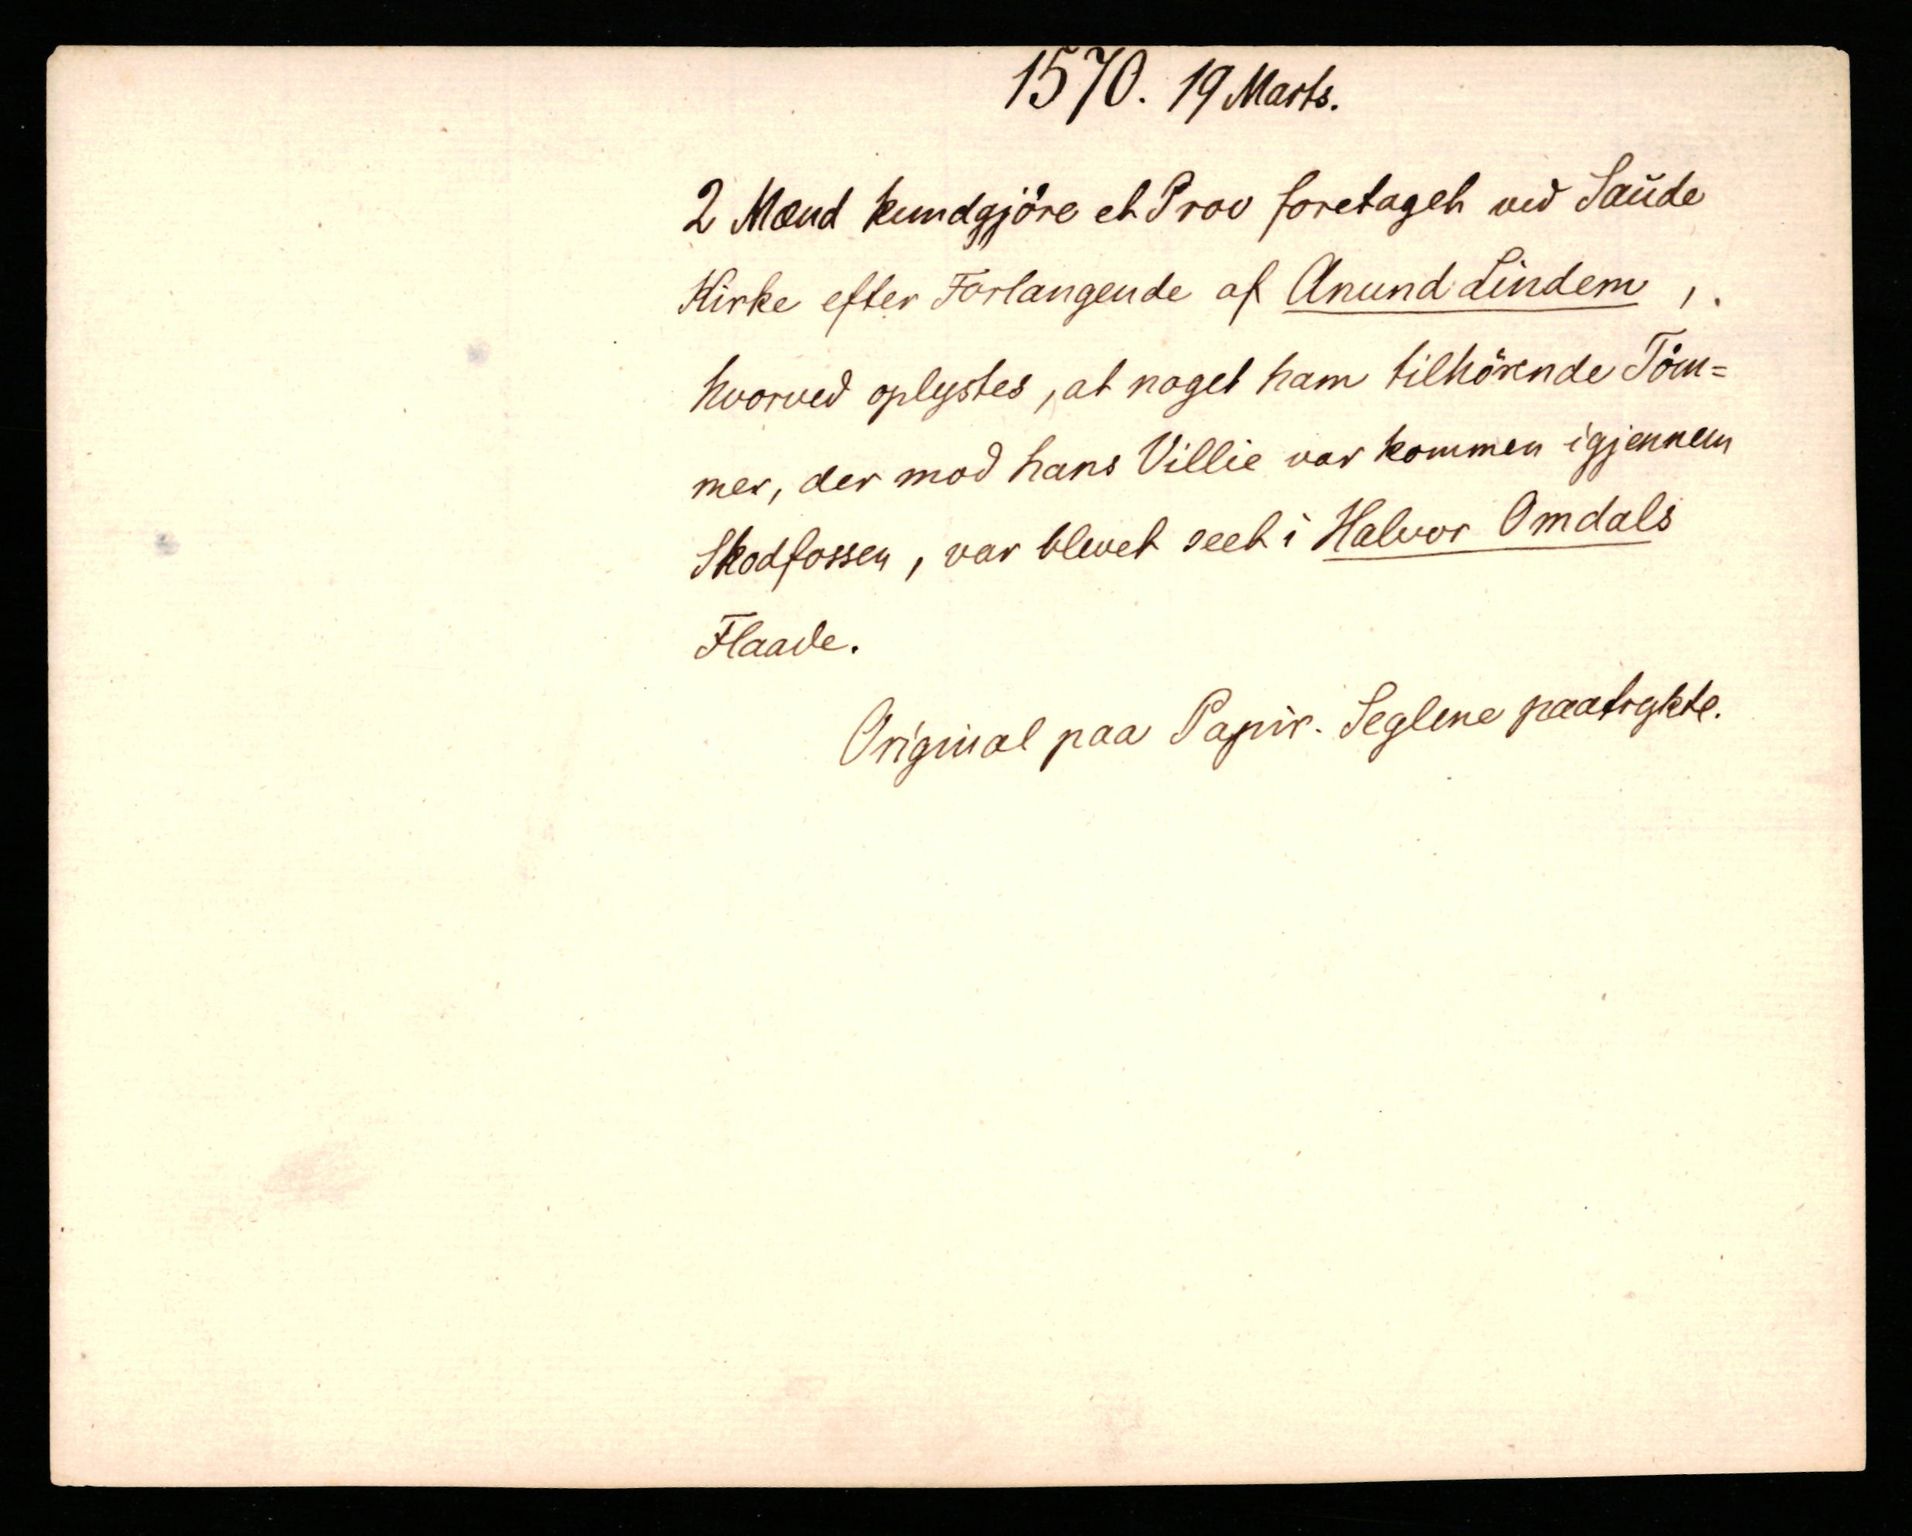 1570. 19 Marts.
2 Mænd kundgjöre et Prov foretaget ved Saŭde
Kirke efter Forlangende af Anund Lindem, .
hvorved oplystes, at noget ham tilhörende Töm=
mer, der mod hans Villie var kommen igjennem
Skodfossen, var blevet seet i Halvor Omdals
Flaade.
Original paa Papir. Seglene paatrykte.